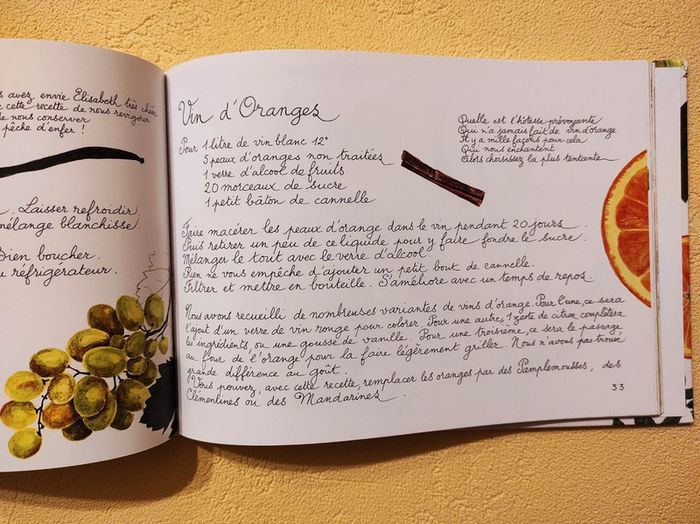 s avez envie Elisabeth très chère
cette recette de nous revigorer
de nous conserver
pêche d'enfer !
. Laisser refroidir
mélange blanchisse.
Bien boucher.
u réfrigérateur.
Vin d'Oranges
Pour 1 litre de vin blanc 12°
5 peaux d'oranges non traitées
1 verre d'alcool de fruits
20 morceaux de sucre
1 petit bâton de cannelle
Quelle est l'hôtesse prévoyante
Qui n'a jamais fait de vin d'orange
Il y a mille façons pour cela
Qui nous enchantent
Alors choisissez la plus tentante
Faire macérer les peaux d'orange dans le vin pendant 20 jours.
Puis retirer un peu de ce liquide pour y faire fondre le sucre.
Mélanger le tout avec le verre d'alcool.
Rien ne vous empêche d'ajouter un petit bout de cannelle.
Filtrer et mettre en bouteille. S'améliore avec un temps de repos.
Nous avons recueilli de nombreuses variantes de vins d'orange. Pour l'une, ce sera
l'ajout d'un verre de vin rouge pour colorer. Pour une autre, 1 zeste de citron complètera
les ingrédients, ou une gousse de vanille. Pour une troisième, ce sera le passage
au four de l'orange pour la faire légèrement griller. Nous n'avons pas trouvé
grande différence au goût.
Vous pouvez, avec cette recette, remplacer les oranges par des Pamplemousses, des
Clémentines ou des Mandarines.
33